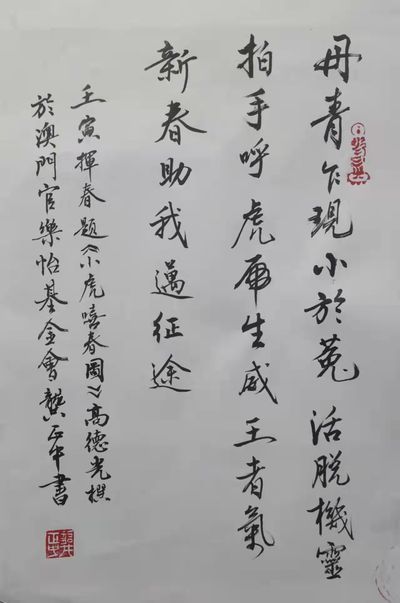 丹青乍現小於菟活脫機靈
拍手呼虎乕生威王者氣
新春助我邁征途
壬寅揮春題《小虎嘻春圖》高德光撰
於澳門官樂怡基金會龔正中書